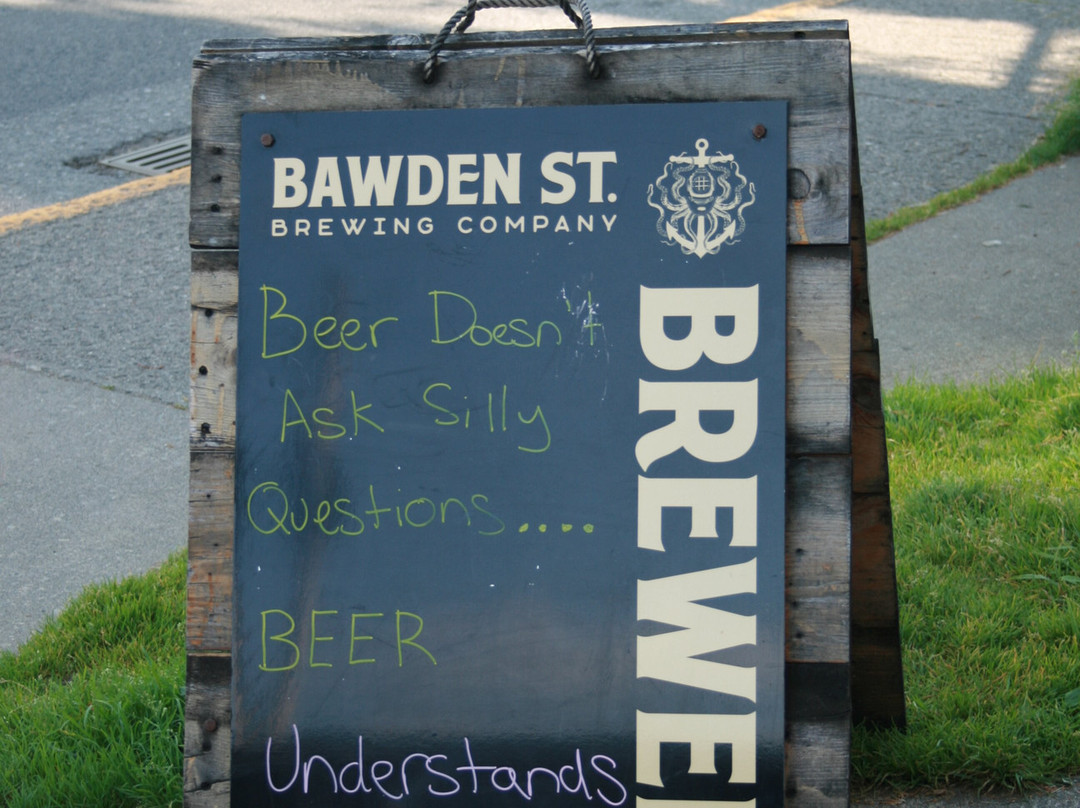 BAWDEN ST.
BREWING COMPANY
Beer Doesn't
Ask Silly
Questions....
BEER
Understands
BREWE